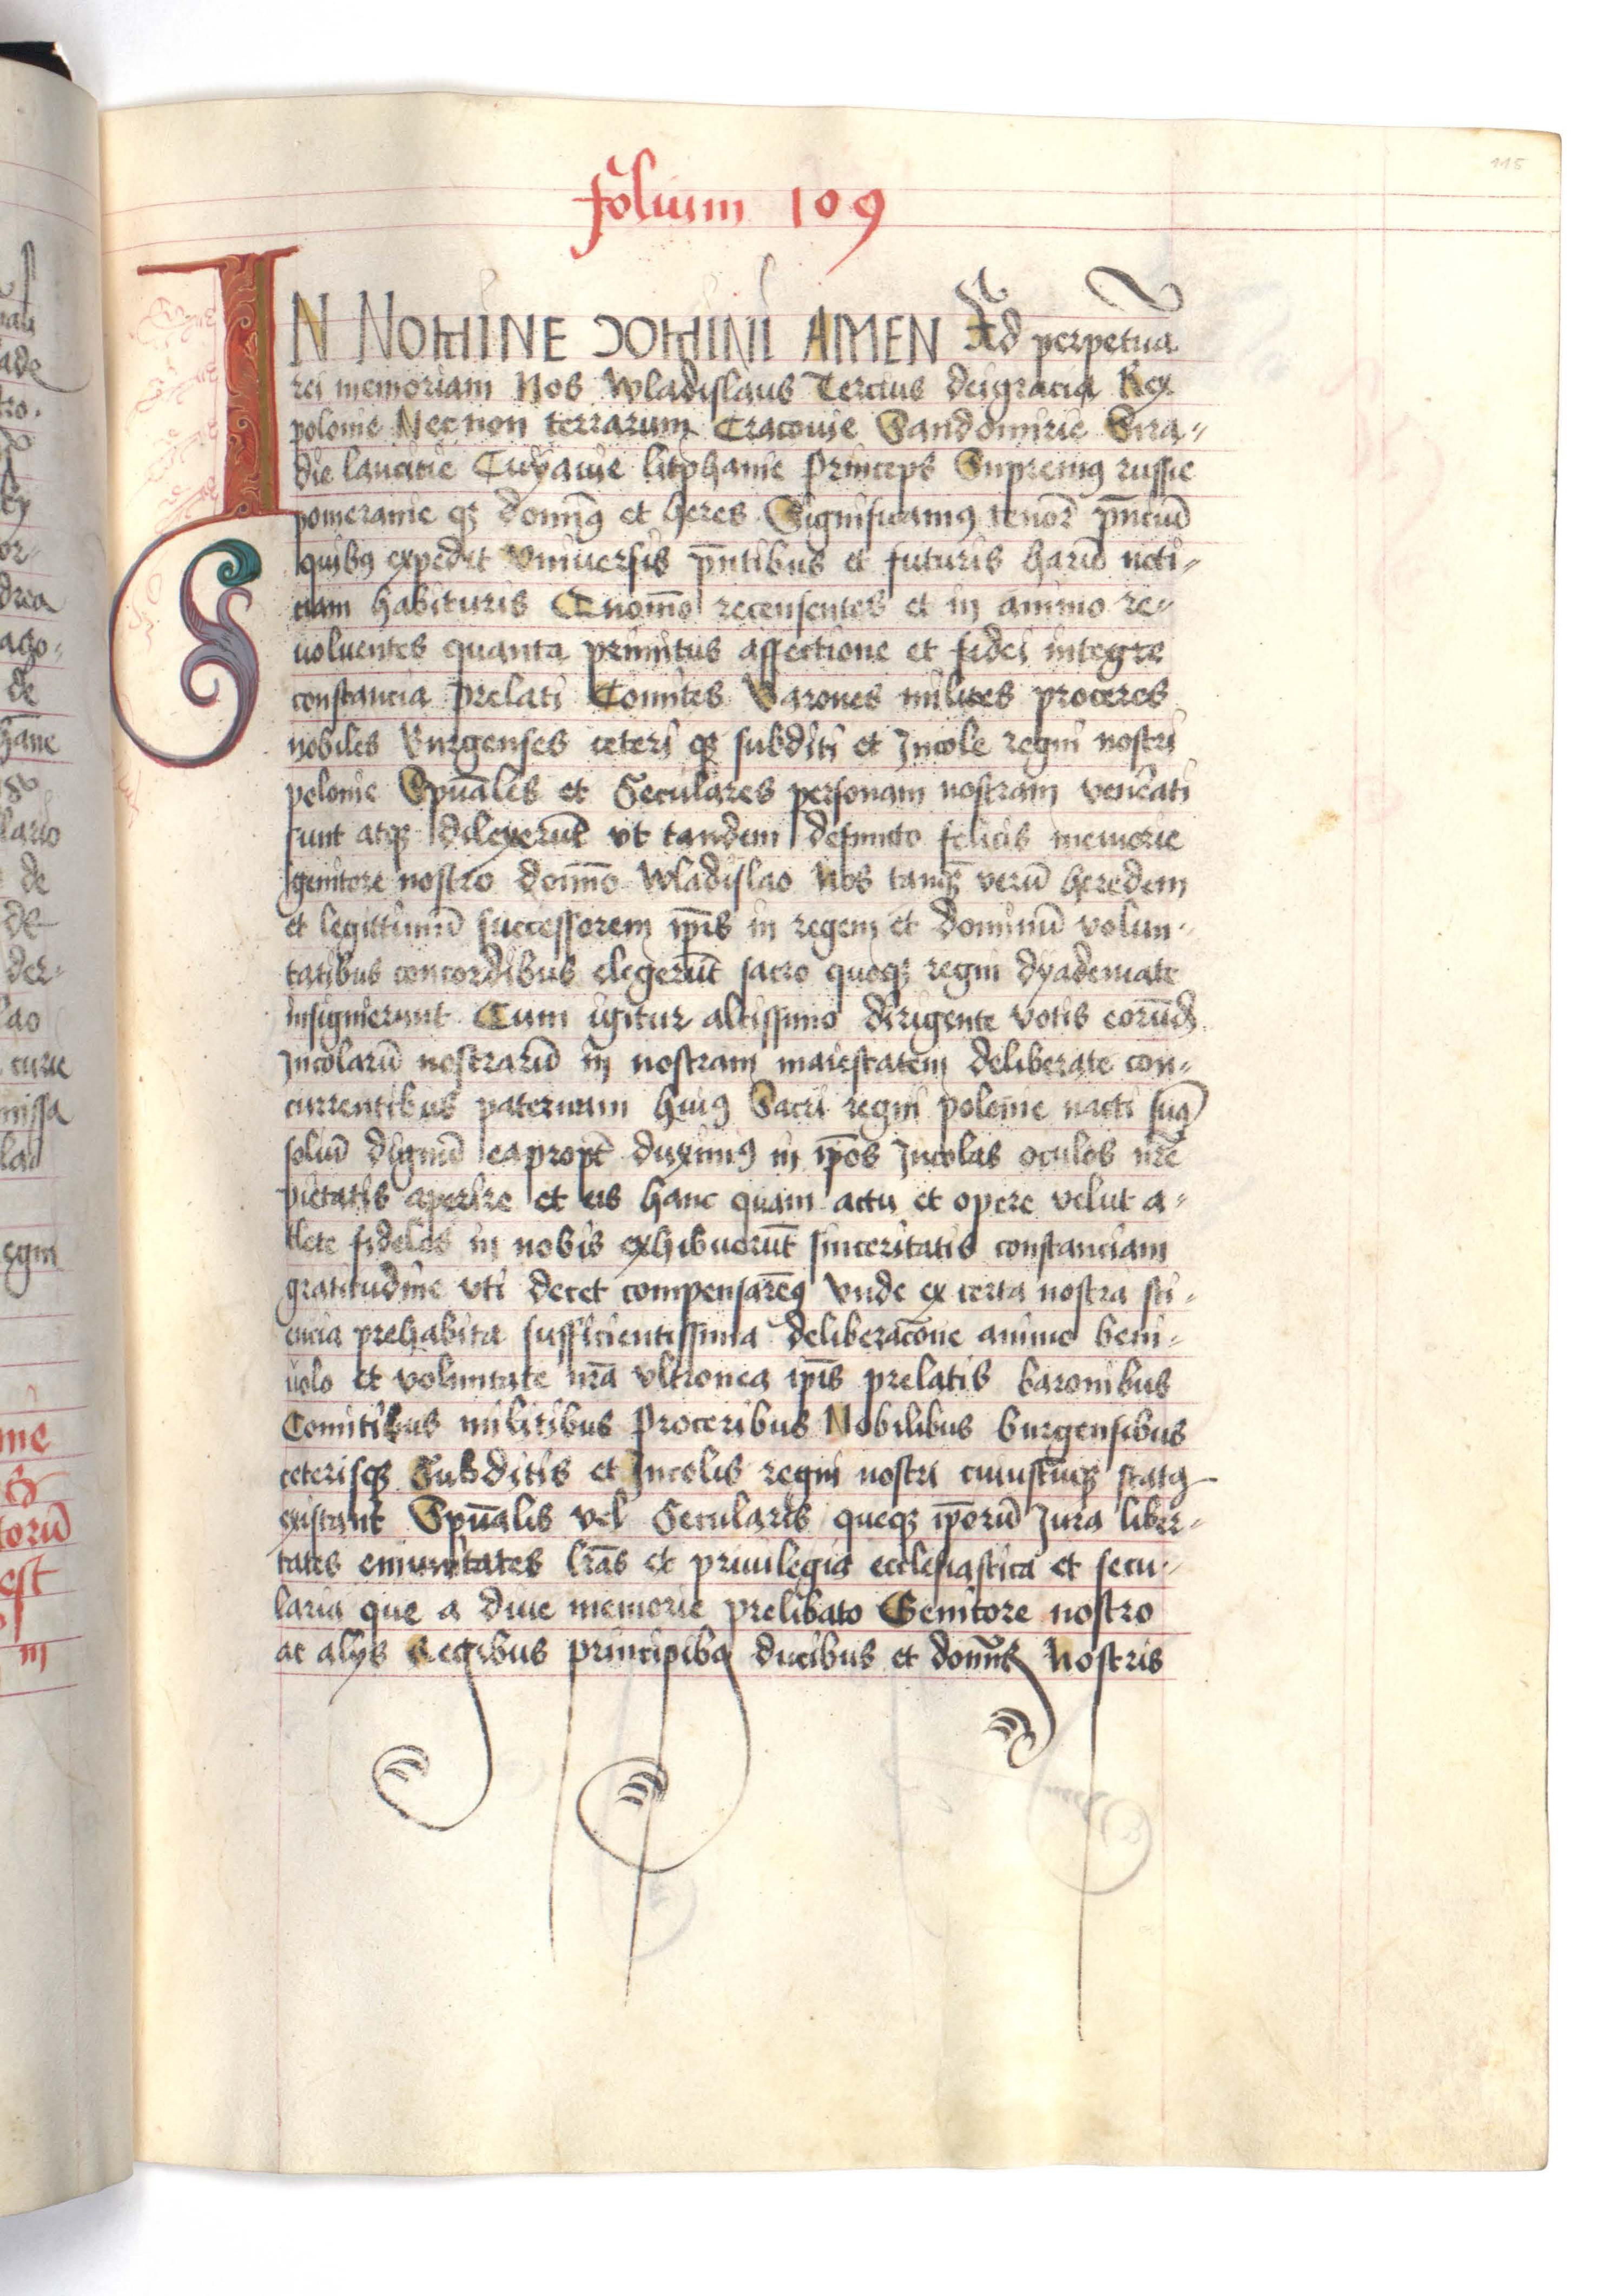 115
folium 109
IN NOMINE DOMINI AMEN Ad perpetuã
rei memoriam Nos Wladislaus Tercius deigracia Rex
polonie Necnon terrarum Cracouie Sandomirie Sira-
die lancicie Cuyauie litphanie Princeps Supremꝰ russie
pomeranie qꝫ domĩꝰ et heres Significamꝰ tenoȓ pñciũ
quibꝰ expedit Vniuersis pñtibus et futuris harũ noti-
ciam habituris Quom̃o recensentes et in animo re-
uoluentes quanta primitus affectione et fidei integre
constancia prelati Comites Barones milites proceres
nobiles Burgenses ceteri qꝫ subditi et Jncole regni nostri
polonie Spũales et Seculares personam nostram veneͬati
sunt atqꝫ dilexerũt vt tandem defuncto felicis memorie
genitore nostro domĩo Wladislao Nos tanqꝫ verũ heredem
et legittimũ successorem ip̃is in regem et dominũ volun-
tatibus concordibus elegerũt sacro quoqꝫ regni dyademate
insignierunt Cum igitur altissimo dirigente votis eorũdꝫ
Jncolarũ nostrarũ in nostram maiestatem deliberate con-
currentibus paternam huiꝰ Sacri regni polonie nacti sumꝰ
soliũ dignũ eapropt̃ duximꝰ in ip̃os Jncolas oculos nr̃e
pietatis aperire et eis hanc quam actu et opere velut a-
tlete fideles in nobis exhibuerũt sinceritatis constanciam
gratitudine vti decet compensarẽꝰ Vnde ex certa nostra sci-
encia prehabita sufficientissima deliberac̃one animo beni-
uolo et voluntate nr̃a vltronea ip̃is prelatis baronibus
Comitibus militibus Proceribus Nobilibus burgensibus
ceterisqꝫ Subditis et Jncolis regni nostri cuiuscũqꝫ statꝰ
existant Spũalis vel Secularis queqꝫ ip̃orũ Jura liber-
tates emunitates lr̃as et priuilegia ecclesiastica et secu-
laria que a diue memorie prelibato Genitore nostro
ac alijs Regibus principibꝰ ducibus et domĩs Nostris